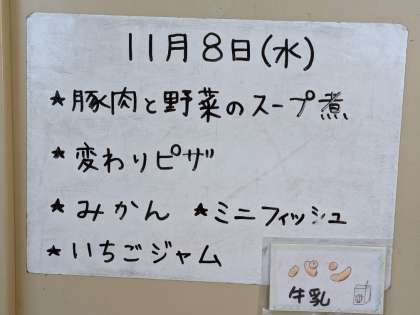 11月8日(水)
★豚肉と野菜のスープ煮
★変わりピザ
★みかん ★ミニフィッシュ
★いちごジャム
牛乳